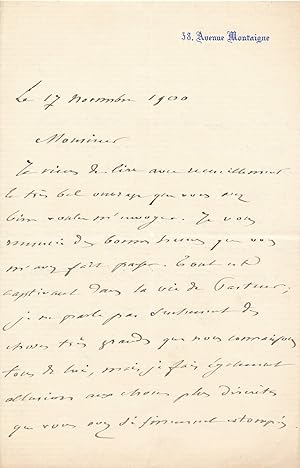 58, Avenue Montaigne
Le 17 novembre 1900
Monsieur
Je viens de lire avec recueillement
le très bel ouvrage que vous avez
bien voulu m'envoyer. Je vous
remercie des bonnes heures que vous
m'avez fait passer. Tout est
captivant dans la vie de Pasteur;
je ne parle pas seulement des
choses très grandes que nous connaissons
tous de lui, mais je fais également
allusion aux choses plus discrètes
que vous avez si finement estompées